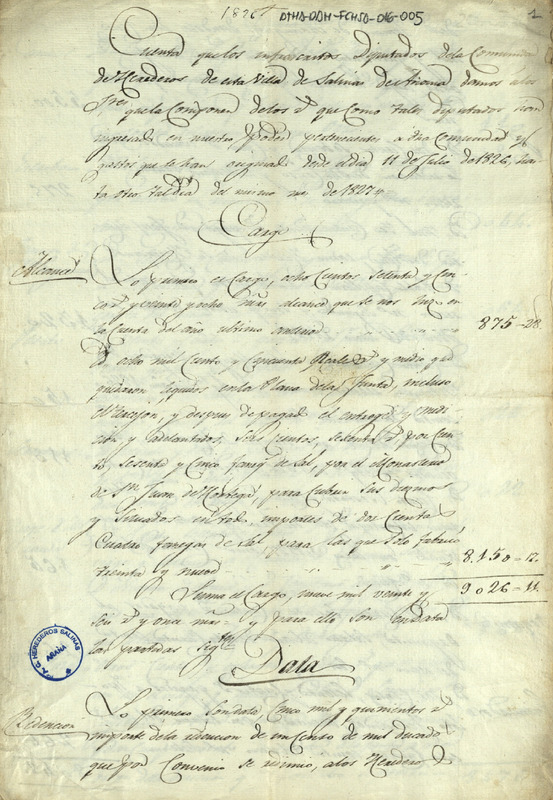 1826
ATHA-DAH-FCHSA-016-005
1
Cuenta que los infrascritos Diputados de la Comunidad
de Herederos de esta Villa de Salinas de Añana damos a los
Sres que la Componen de los rs que como tales diputados han
ingresado en nuestro Poder pertenecientes a dha Comunidad y
gastos que se han originado desde el dia 11 de Julio de 1826, has-
ta otro tal dia del mismo mes de 1827
Cargo
Alcance
Lo primero es Cargo, ocho Cientos Setenta y Cin-
co rs y veinte y ocho mrs alcance que se nos hizo en
la Cuenta del año ultimo anterior
875-28
ocho mil Ciento y Cincuenta Reales y medio que
quedaron liquidos en la Plana de la Junta, incluso
y despues de pagado el entrego y medi-
cion y adelantados, Seis Cientos, Setenta rs por Cien-
to, Sesenta y Cinco fanegs de Sal, por el Monasterio
de Sn Juan de para Cubrir Sus diezmos
y Situados en tal importe de dos Cientas
Cuatro fanegas de Sal para las que solo fabricó
treinta y nueve
8.150-17.
Suma el Cargo, nueve mil veinte y
seis rs y once mrs y para ello son en Data
las partidas sigtes
9026-11.
Data
HEREDEROS SALINAS
AÑANA
Redencion
Lo primero son data, Cinco mil y quinientos rs
importe de la redencion de un Censo de mil ducados
que por Convenio se redimio, a los Herederos de